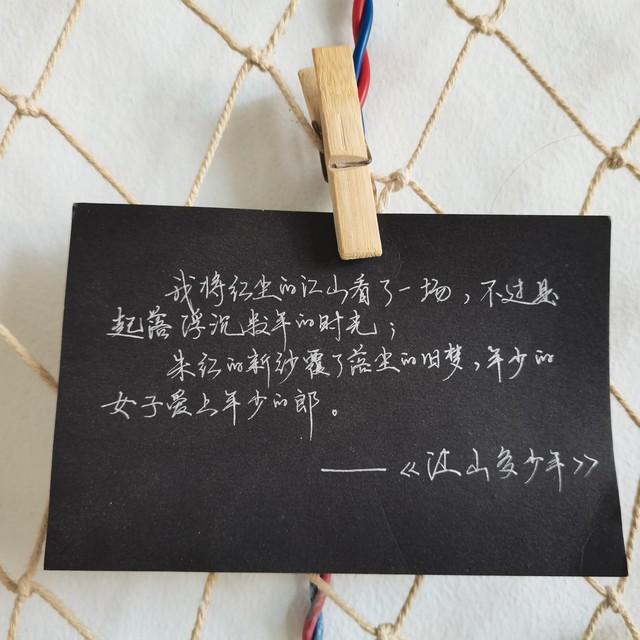 我将红尘的江山看了一场，不过是
起落浮沉数年的时光；
朱红的新纱覆了落尘的旧梦，年少的
女子爱上年少的郎。
——《江山多少年》